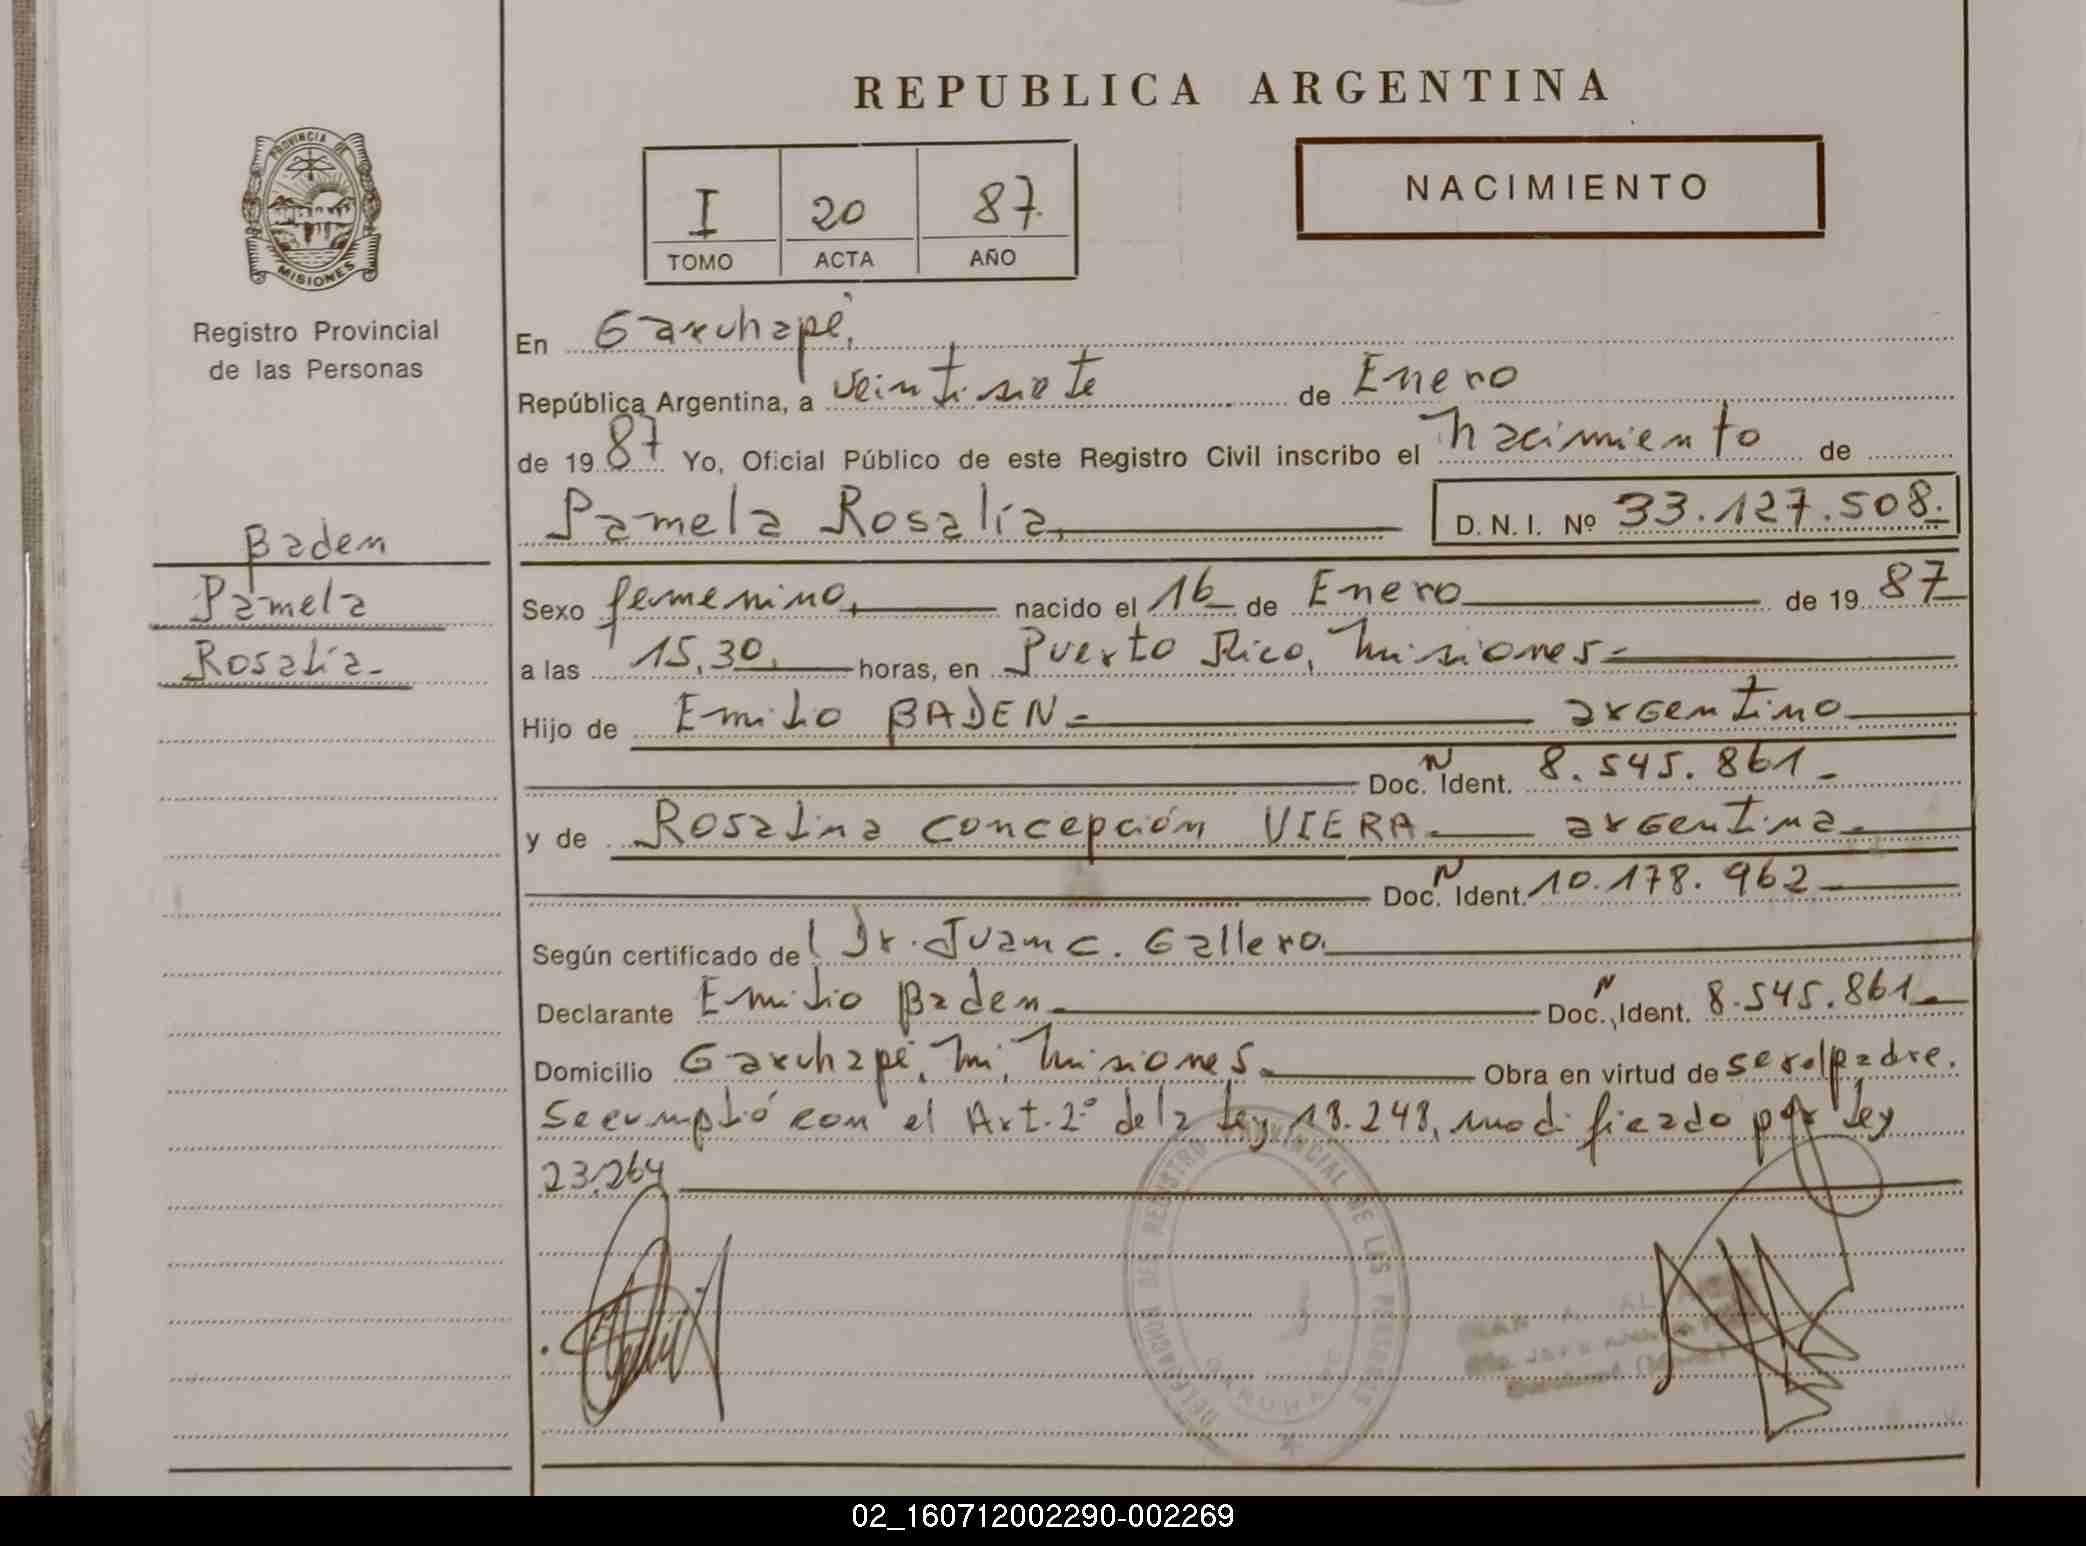 REPUBLICA ARGENTINA
PROVINCIA DE
MISIONES
I 20 87
TOMO ACTA AÑO
NACIMIENTO
Registro Provincial
de las Personas
Baden
Pamela
Rosalía.
En Garuhapé,
República Argentina, a veintisiete de Enero
de 19 87 Yo, Oficial Público de este Registro Civil inscribo el nacimiento de
Pamela Rosalía, D. N. I. Nº 33.127.508.
Sexo femenino, nacido el 16 de Enero de 19 87
a las 15,30, horas, en Puerto Rico, Misiones.
Hijo de Emilio BADEN argentino
Doc. N Ident. 8.545.861
y de Rosalina Concepción VIERA argentina
Doc. N Ident. 10.178.962
Según certificado de Dr. Juan C. Gallero
Declarante Emilio Baden Doc. N Ident. 8.545.861
Domicilio Garuhapé, Mi, Misiones Obra en virtud de ser el padre.
Se cumplió con el Art. 2º de la Ley 18.248, modificado por Ley
23.264
DELEGACION DEL REGISTRO PROVINCIAL DE LAS PERSONAS
GARUHAPE
02_160712002290-002269